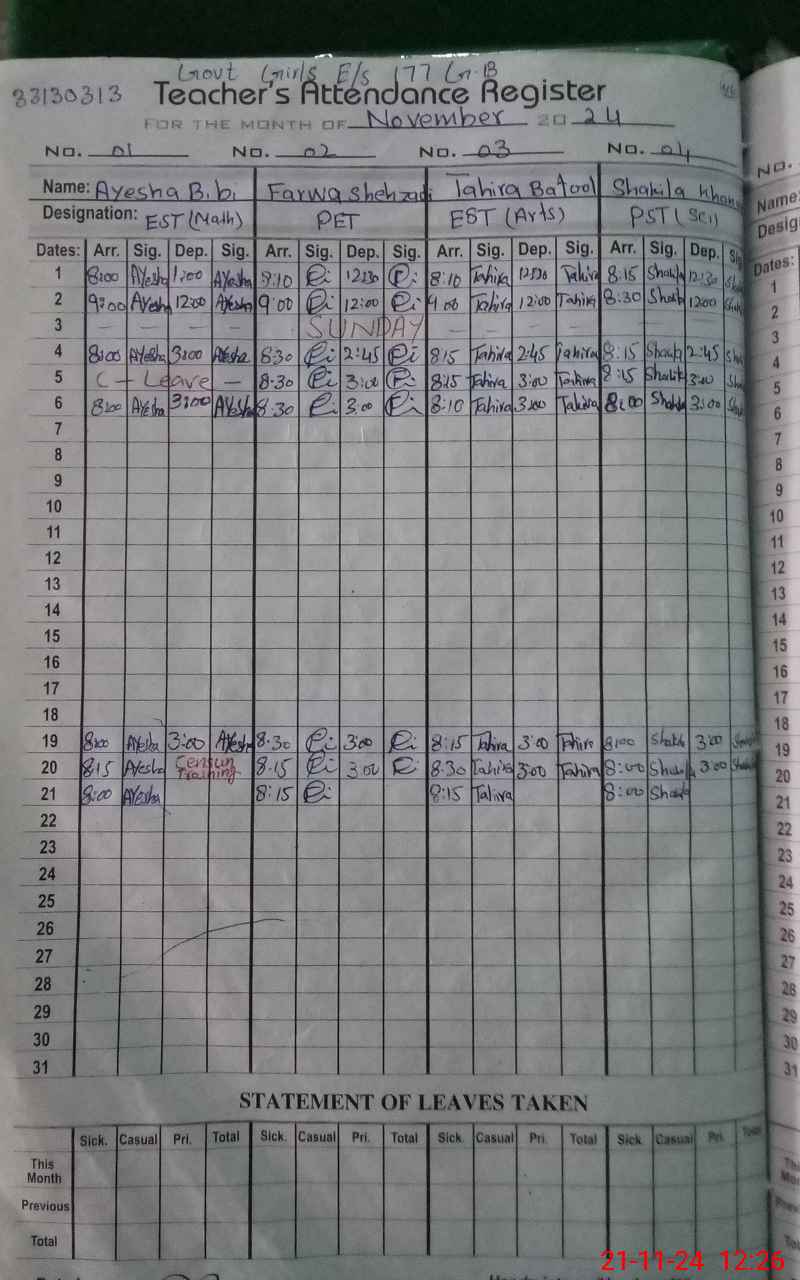 Govt Girls E/s 177 Gr.B
83130313 Teacher's Attendance Register
FOR THE MONTH OF November 20 24
No. 01 No. 02 No. 03 No. 04
Name: Ayesha B.bi Farwa Shehzadi Tahira Batool Shakila Khan
Designation: EST (Math) PET EST (Arts) PST (Sci)
Dates: Arr. Sig. Dep. Sig. Arr. Sig. Dep. Sig. Arr. Sig. Dep. Sig. Arr. Sig. Dep. Sig
1 8:00 Ayesha 1:00 Ayesha 8:10 12:30 8:10 Tahira 12:30 Tahira 8:15 Shakila 12:30
2 9:00 Ayesha 12:00 Ayesha 9:00 12:00 9:00 Tahira 12:00 Tahira 8:30 Shakila 12:00
3 — — — — SUNDAY — — — — — — —
4 8:00 Ayesha 3:00 Ayesha 8:30 2:45 8:15 Tahira 2:45 Tahira 8:15 Shakila 2:45 Sha
5 C - Leave — 8:30 3:00 8:15 Tahira 3:00 Tahira 8:15 Shakila 3:00 Sha
6 8:00 Ayesha 3:00 Ayesha 8:30 3:00 8:10 Tahira 3:00 Tahira 8:00 Shakila 3:00
7
8
9
10
11
12
13
14
15
16
17
18
19 8:00 Ayesha 3:00 Ayesha 8.30 3:00 8:15 Tahira 3:00 Tahira 8:00 Shakila 3:00
20 8:15 Ayesha Census Training 8.15 3:00 8:30 Tahira 3:00 Tahira 8:00 Shakila 3:00
21 8:00 Ayesha 8:15 8:15 Tahira 8:00 Shakila
22
23
24
25
26
27
28
29
30
31
STATEMENT OF LEAVES TAKEN
Sick. Casual Pri. Total Sick. Casual Pri. Total Sick. Casual Pri. Total Sick. Casual Pri. Total
This Month
Previous
Total
No.
Name:
Desig
Dates:
1
2
3
4
5
6
7
8
9
10
11
12
13
14
15
16
17
18
19
20
21
22
23
24
25
26
27
28
29
30
31
21-11-24 12:26